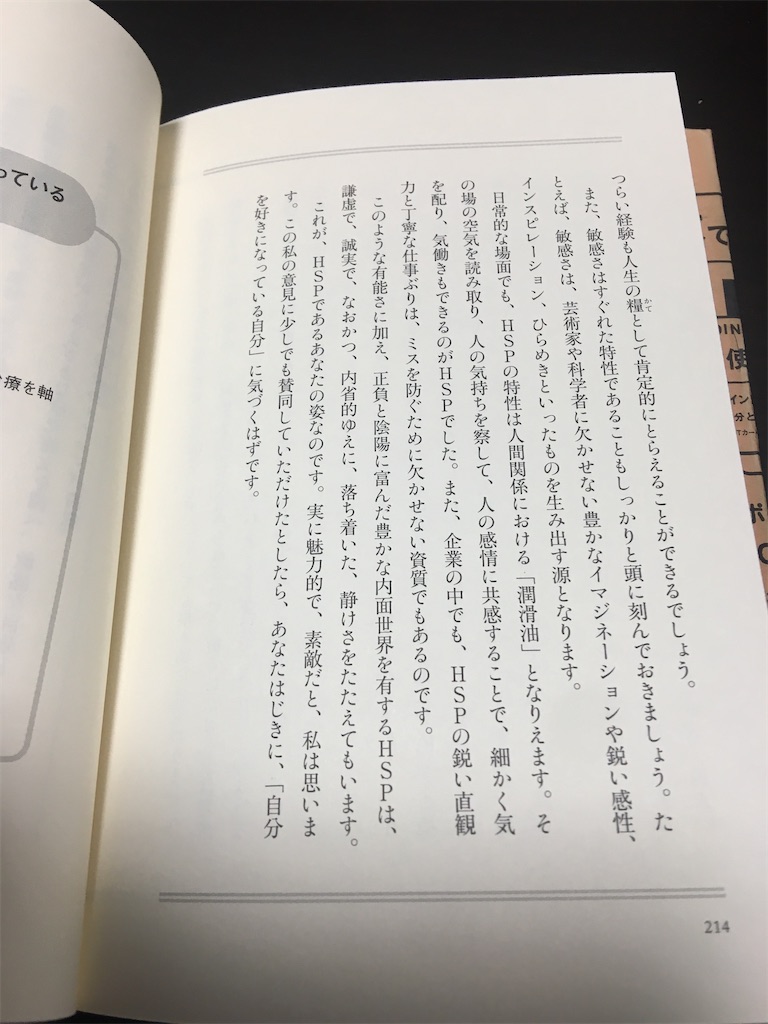 つらい経験も人生の糧として肯定的にとらえることができるでしょう。
かて
また、敏感さはすぐれた特性であることもしっかりと頭に刻んでおきましょう。た
とえば、敏感さは、芸術家や科学者に欠かせない豊かなイマジネーションや鋭い感性、
インスピレーション、ひらめきといったものを生み出す源となります。
日常的な場面でも、HSPの特性は人間関係における「潤滑油」となりえます。そ
の場の空気を読み取り、人の気持ちを察して、人の感情に共感することで、細かく気
を配り、気働きもできるのがHSPでした。また、企業の中でも、HSPの鋭い直観
力と丁寧な仕事ぶりは、ミスを防ぐために欠かせない資質でもあるのです。
このような有能さに加え、正負と陰陽に富んだ豊かな内面世界を有するHSPは、
謙虚で、誠実で、なおかつ、内省的ゆえに、落ち着いた、静けさをたたえてもいます。
これが、HSPであるあなたの姿なのです。実に魅力的で、素敵だと、私は思いま
す。この私の意見に少しでも賛同していただけたとしたら、あなたはじきに、「自分
を好きになっている自分」に気づくはずです。
214
っている
療を軸
使
イン
分と
ポ